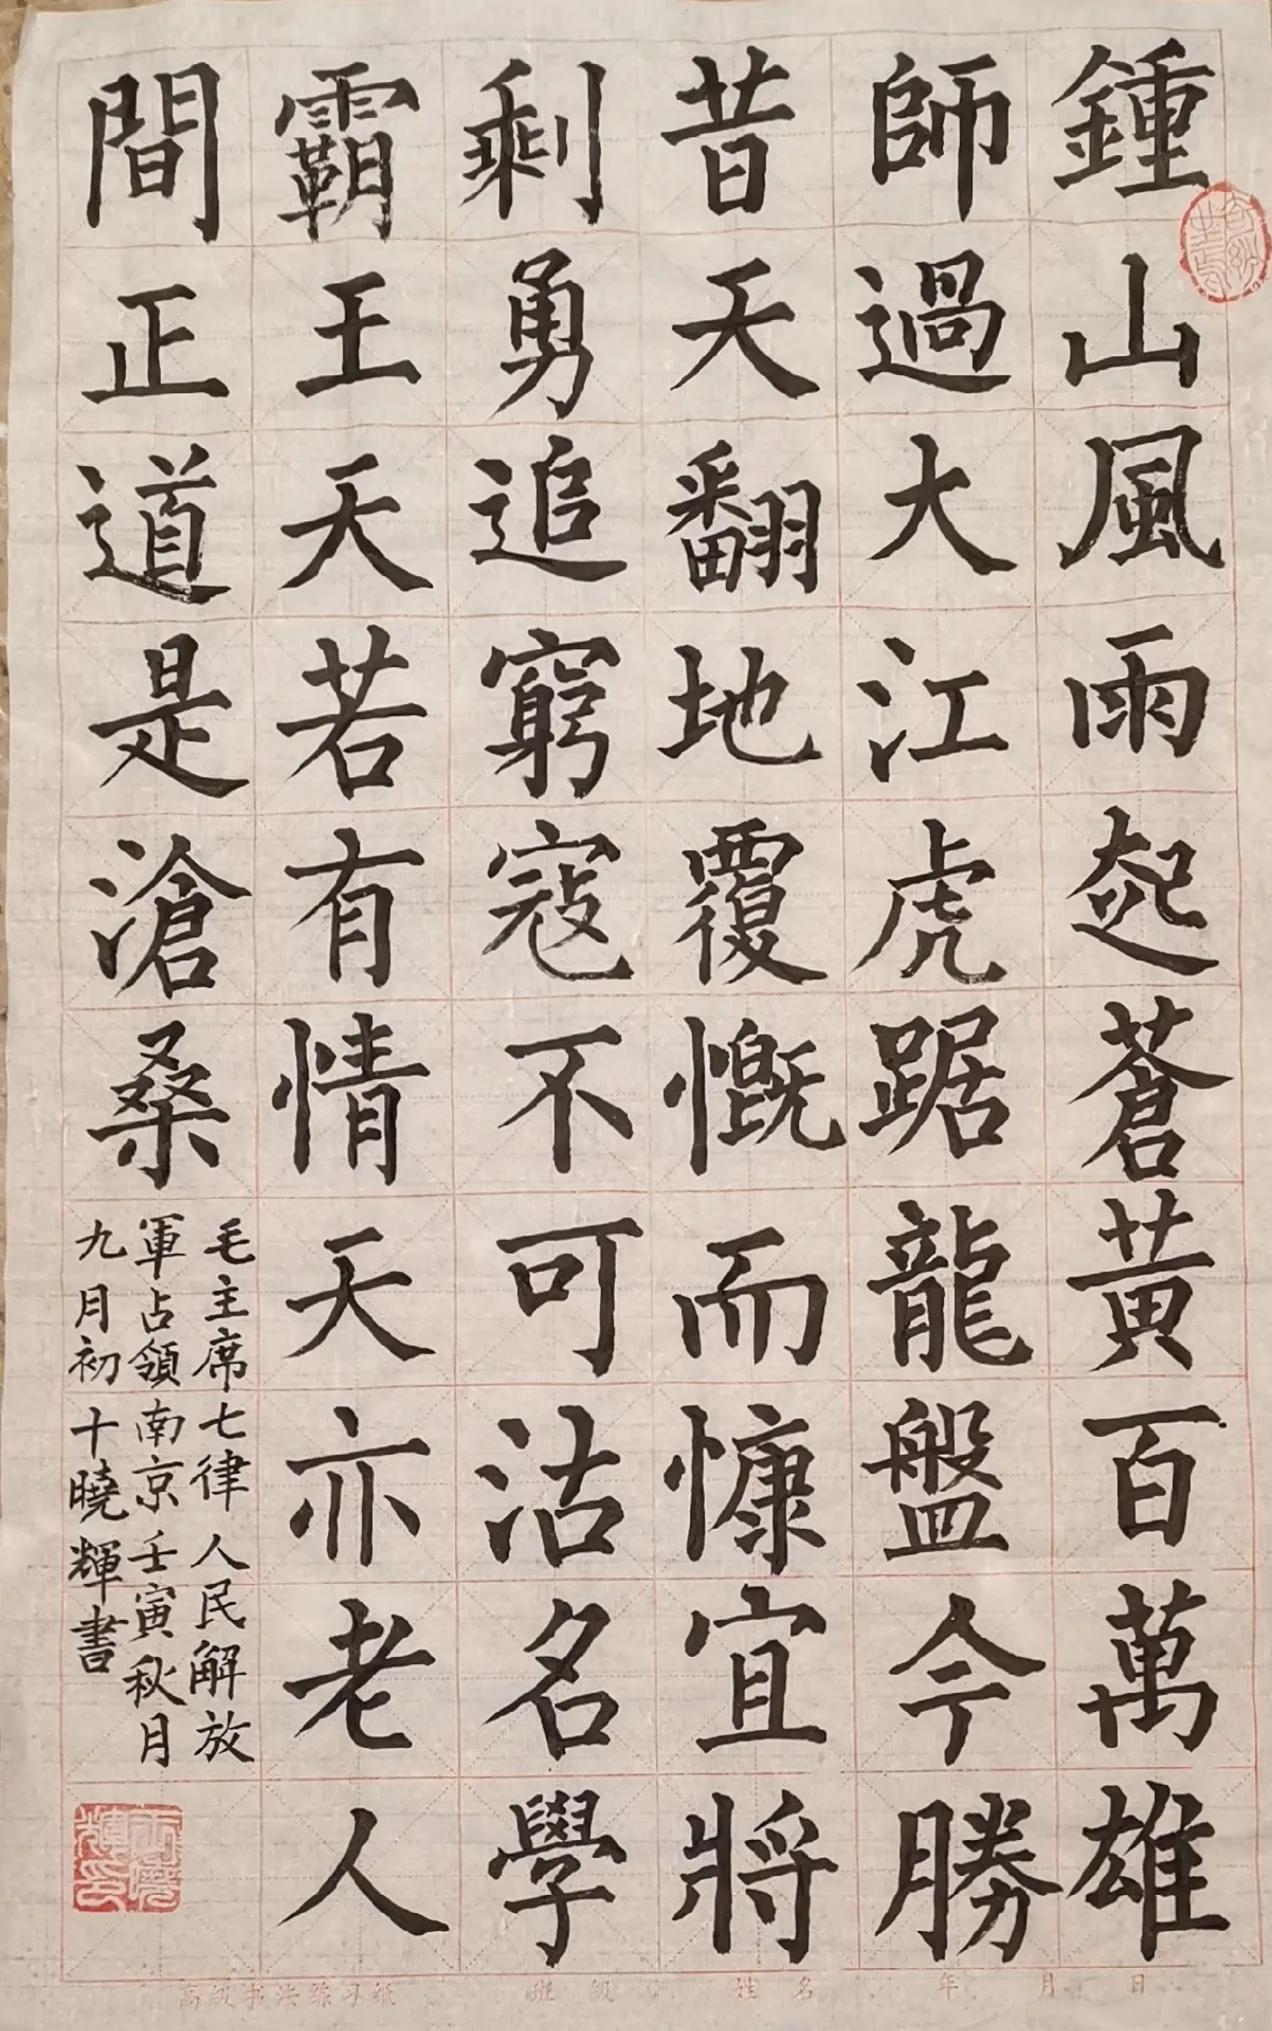 鍾山風雨起蒼黃百萬雄
師過大江虎踞龍盤今勝
昔天翻地覆慨而慷宜將
剩勇追窮寇不可沽名學
霸王天若有情天亦老人
間正道是滄桑
毛主席七律人民解放
軍占領南京壬寅秋月
九月初十曉輝書
高级书法练习纸 班级 姓名 年 月 日